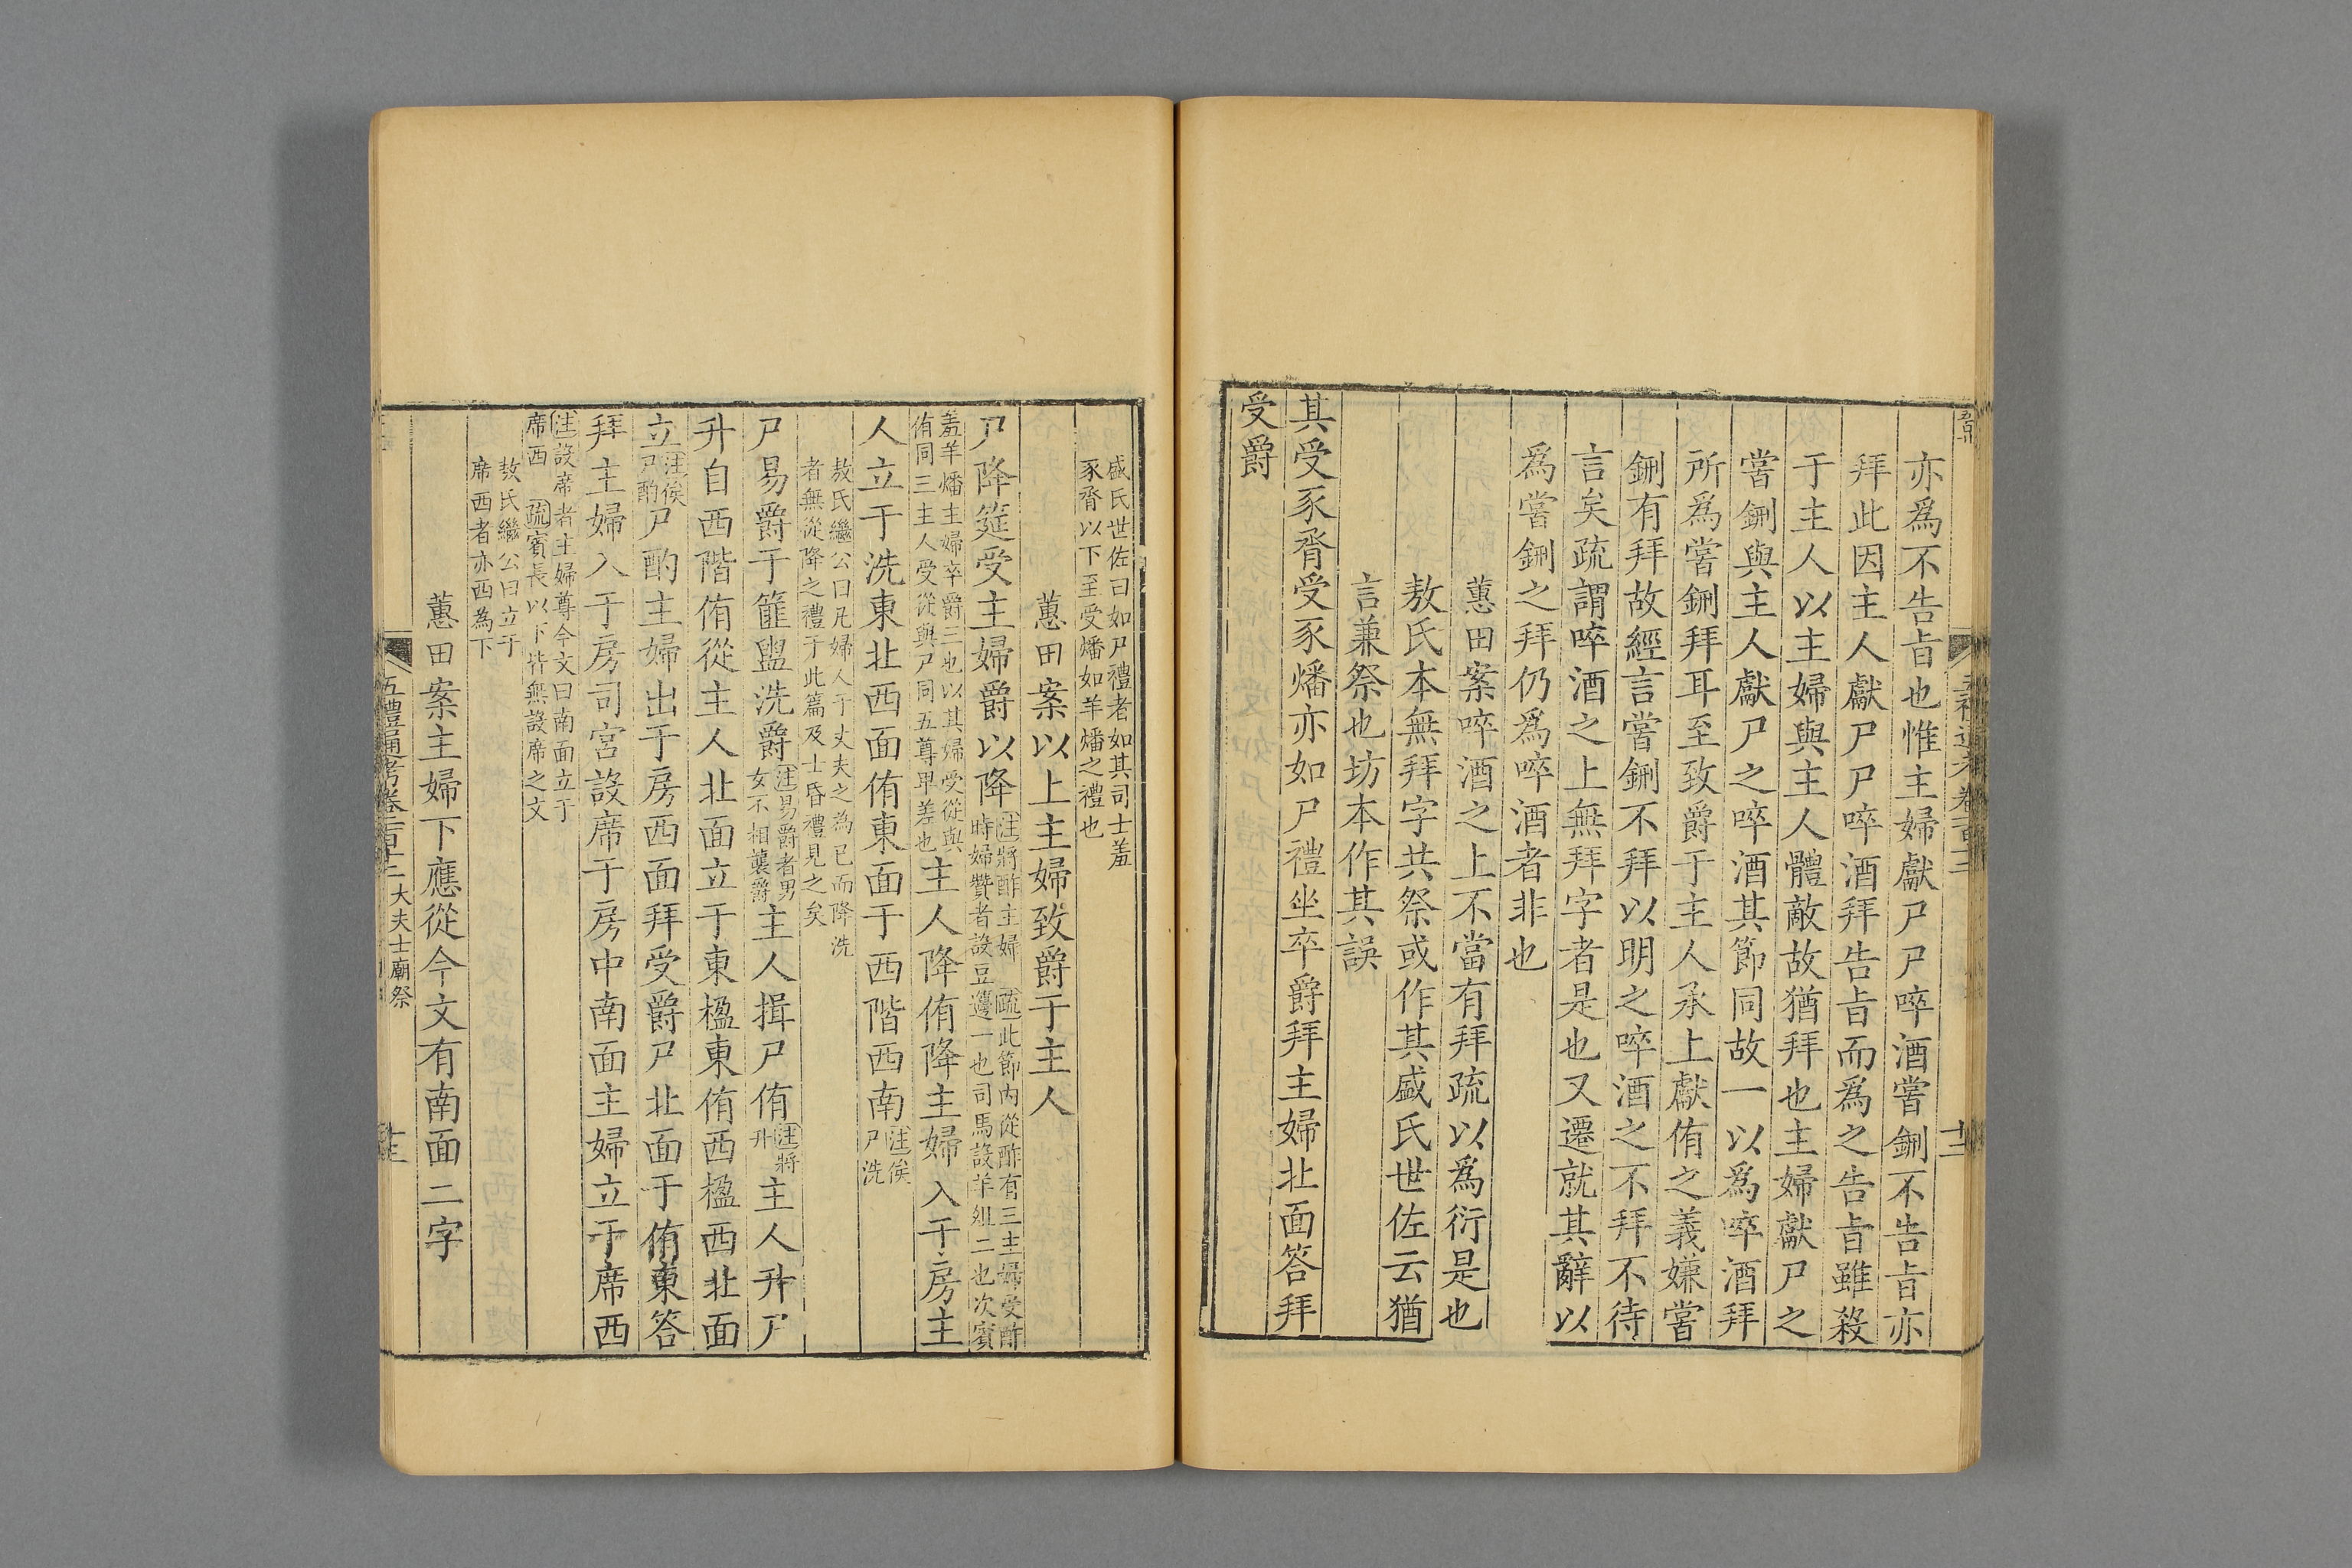 亦爲不告旨也惟主婦獻尸尸啐酒嘗鉶不告旨亦
拜此因主人獻尸尸啐酒拜告旨而爲之告旨雖殺
于主人以主婦與主人體敵故猶拜也主婦獻尸之
嘗鉶與主人獻尸之啐酒其節同故一以爲啐酒拜
所爲嘗鉶拜耳至致爵于主人承上獻侑之義嫌嘗
鉶有拜故經言嘗鉶不拜以明之啐酒之不拜不待
言矣疏謂啐酒之上無拜字者是也又遷就其辭以
爲嘗鉶之拜仍爲啐酒者非也
蕙田案啐酒之上不當有拜疏以爲衍是也
敖氏本無拜字共祭或作其盛氏世佐云猶
言兼祭也坊本作其誤
其受豕脀受豕燔亦如尸禮坐卒爵拜主婦北面答拜
受爵
盛氏世佐曰如尸禮者如其司士羞
豕脀以下至受燔如羊燔之禮也
蕙田案以上主婦致爵于主人
尸降筵受主婦爵以降注將酢主婦 疏此節內從酢有三主婦受酢
時婦贊者設豆籩一也司馬設羊俎二也次賓
羞羊燔主婦卒爵三也以其婦受從與
侑同三主人受從與尸同五尊卑差也主人降侑降主婦入于房主
人立于洗東北西面侑東面于西階西南注俟
尸洗
敖氏繼公曰凡婦人于丈夫之為已而降洗
者無從降之禮于此篇及士昏禮見之矣
尸易爵于篚盥洗爵注易爵者男
女不相襲爵主人揖尸侑注將
升主人升尸
升自西階侑從主人北面立于東楹東侑西楹西北面
立注俟
尸酌尸酌主婦出于房西面拜受爵尸北面于侑東答
拜主婦入于房司宮設席于房中南面主婦立于席西
注設席者主婦尊今文曰南面立于
席西 疏賓長以下皆無設席之文
敖氏繼公曰立于
席西者亦西為下
蕙田案主婦下應從今文有南面二字
五禮通考卷一百十二 大夫士廟祭